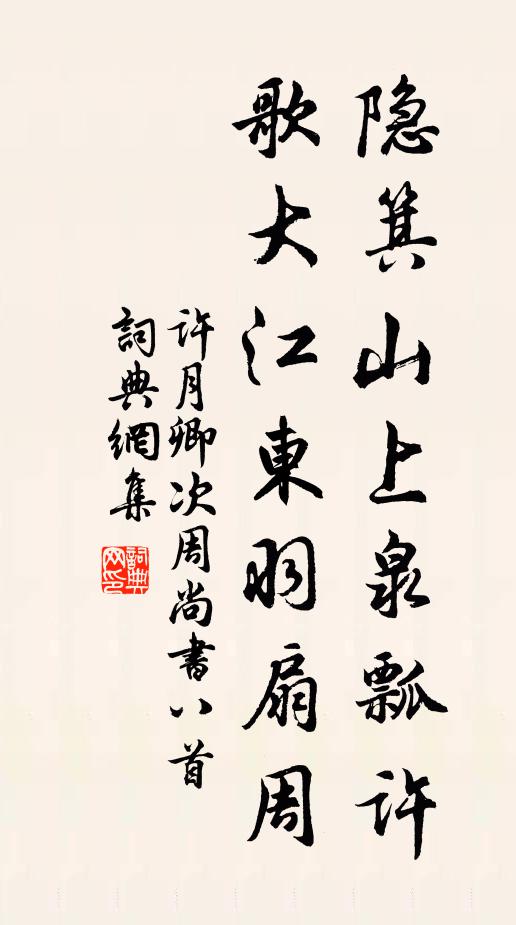 隐箕山上泉瓢许
歌大江東羽扇周
许月卿次周尚書八首
詞典網集
詞典網印